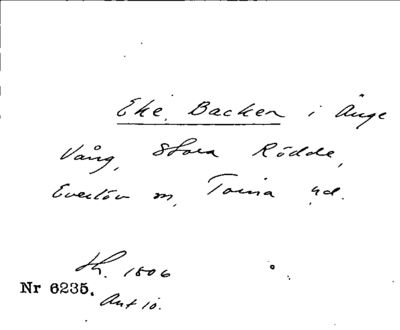 Eke, Backen i Änge
Vång, Stora Rödde,
Everlöv sn, Torna hd.
Sk. 1806
Nr 6235.
Akt 10.